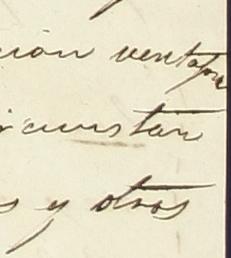 ción ventajo
circunstan
s y otros